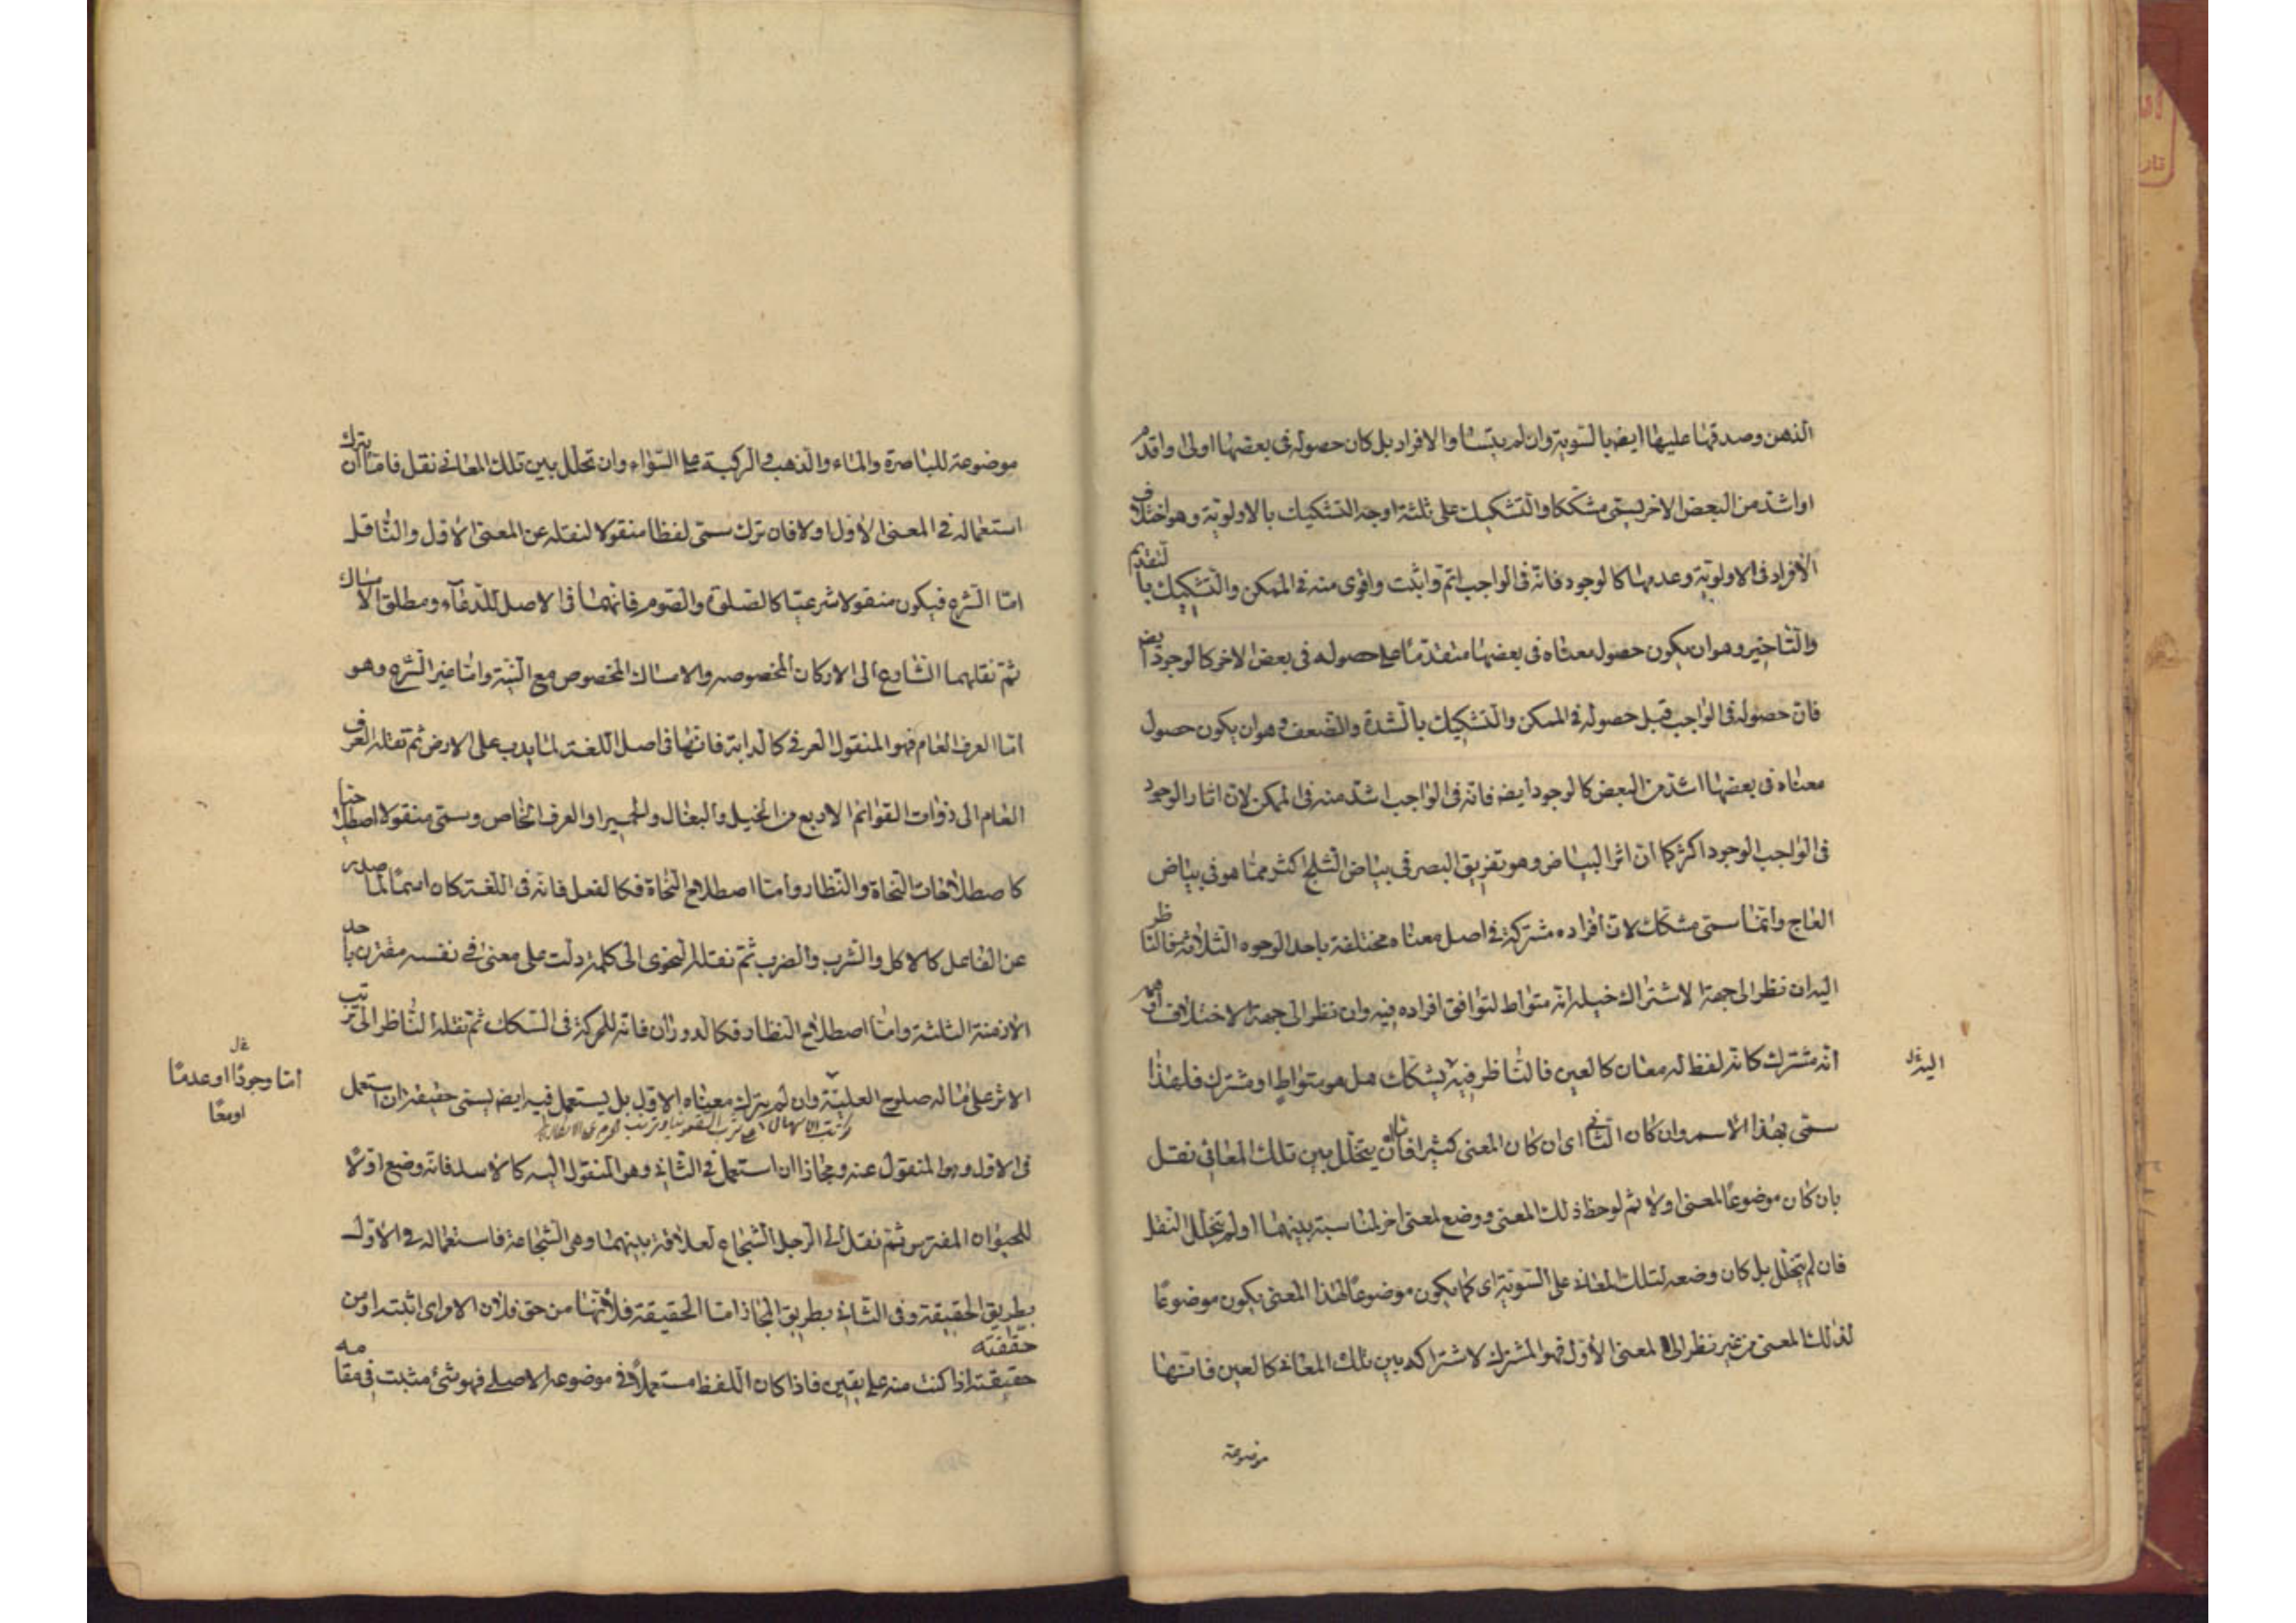 الذهن وصدقها عليها ايض بالسوية وان لم يتساو الافراد بل كان حصوله فى بعضها اولى واقدم
او اشد من البعض الاخر يسمى مشككا والتشكيك على ثلثة اوجه التشكيك بالاولوية وهو اختلاف
الافراد فى الاولوية وعدمها كالوجود فانه فى الواجب اتم واثبت واقوى منه فى الممكن والتشكيك بالتقديم
والتاخير وهو ان يكون حصول معناه فى بعضها متقدما على حصوله فى بعض الاخر كالوجود ايض
فان حصوله فى الواجب قبل حصوله فى الممكن والتشكيك بالشدة والضعف وهو ان يكون حصول
معناه فى بعضها اشد من البعض كالوجود ايض فانه فى الواجب اشد منه فى الممكن لان اثار الوجود
فى الواجب الوجود اكثر كما ان اثر البياض وهو تفريق البصر فى بياض الثلج اكثر مما هو فى بياض
العاج وانما سمى مشكك لان افراده مشتركة فى اصل معناه مختلفة باحد الوجوه الثلاثة فالناظر
اليه ان نظر الى جهة الاشتراك خيله انه متواط لتوافق افراده فيه وان نظر الى جهة الاختلاف اوهم
انه مشترك كانه لفظ له معان كالعين فالناظر فيه يشكك هل هو متواط او مشترك فلهذا
سمى بهذا الاسم وان كان الثانى اى ان كان المعنى كثيرا فاما ان يتخلل بين تلك المعانى نقل
بان كان موضوعا لمعنى اولا ثم لوحظ ذلك المعنى ووضع لمعنى اخر لمناسبة بينهما او لم يتخلل النقل
فان لم يتخلل بل كان وضعه لتلك المعانى على السوية اى كما يكون موضوعا لهذا المعنى يكون موضوعا
لذلك المعنى من غير نظر الى المعنى الاول فهو المشترك لاشتراكه بين تلك المعانى كالعين فانها
موضوعة
موضوعة للباصرة والماء والذهب والركبة على السواء وان تخلل بين تلك المعانى نقل فاما ان يترك
استعماله فى المعنى الاول او لا فان ترك سمى لفظا منقولا لنقله عن المعنى الاول والناقل
اما الشرع فيكون منقولا شرعيا كالصلوة والصوم فانهما فى الاصل للدعاء ومطلق الامساك
ثم نقلهما الشارع الى الاركان المخصوصه والامساك المخصوص مع النية واما غير الشرع وهو
اما العرف العام فهو المنقول العرفى كالدابة فانها فى اصل اللغة لما يدب على الارض ثم نقله العرف
العام الى ذوات القوائم الاربع من الخيل والبغال والحمير او العرف الخاص ويسمى منقولا اصطلاحيا
كاصطلاحات النحاة والنظار واما اصطلاح النحاة فكالفعل فانه فى اللغة كان اسما لما صدر
عن الفاعل كالاكل والشرب والضرب ثم نقله النحوى الى كلمة دلت على معنى فى نفسه مقترن باحد
الازمنة الثلثة واما اصطلاح النظار فكالدوران فانه للحركة فى السكك ثم نقله الناظر الى ترتيب
الاثر على ما له صلوح العلية وان لم يترك معناه الاول بل يستعمل فيه ايض يسمى حقيقة ان استعمل
فى الاول وهو المنقول عنه ومجازا ان استعمل فى الثانى وهو المنقول اليه كالاسد فانه وضع اولا
للحيوان المفترس ثم نقل الى الرجل الشجاع لعلاقة بينهما وهى الشجاعة فاستعماله فى الاول
بطريق الحقيقة وفى الثانى بطريق المجاز اما الحقيقة فلانها من حق فلان الامر اى اثبته او من
حققته
حقيقته اذا كنت منه على يقين فاذا كان اللفظ مستعملا فى موضوعه الاصلى فهو شئ مثبت فى مقامه
اما وجودا او عدما
او معا